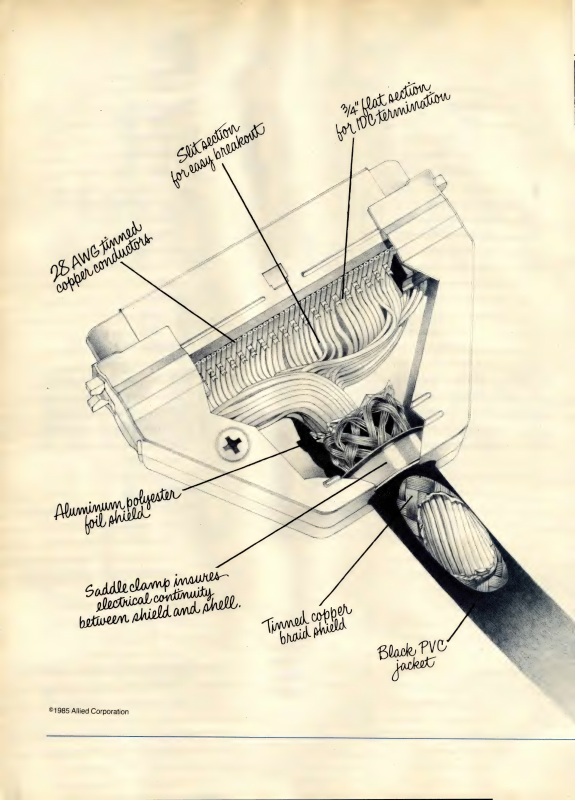 3/4" flat section
for IDC termination
Slit section
for easy breakout
28 AWG tinned
copper conductors
Aluminum polyester
foil shield
Saddle clamp insures
electrical continuity
between shield and shell.
Tinned copper
braid shield
Black PVC
jacket
©1985 Allied Corporation